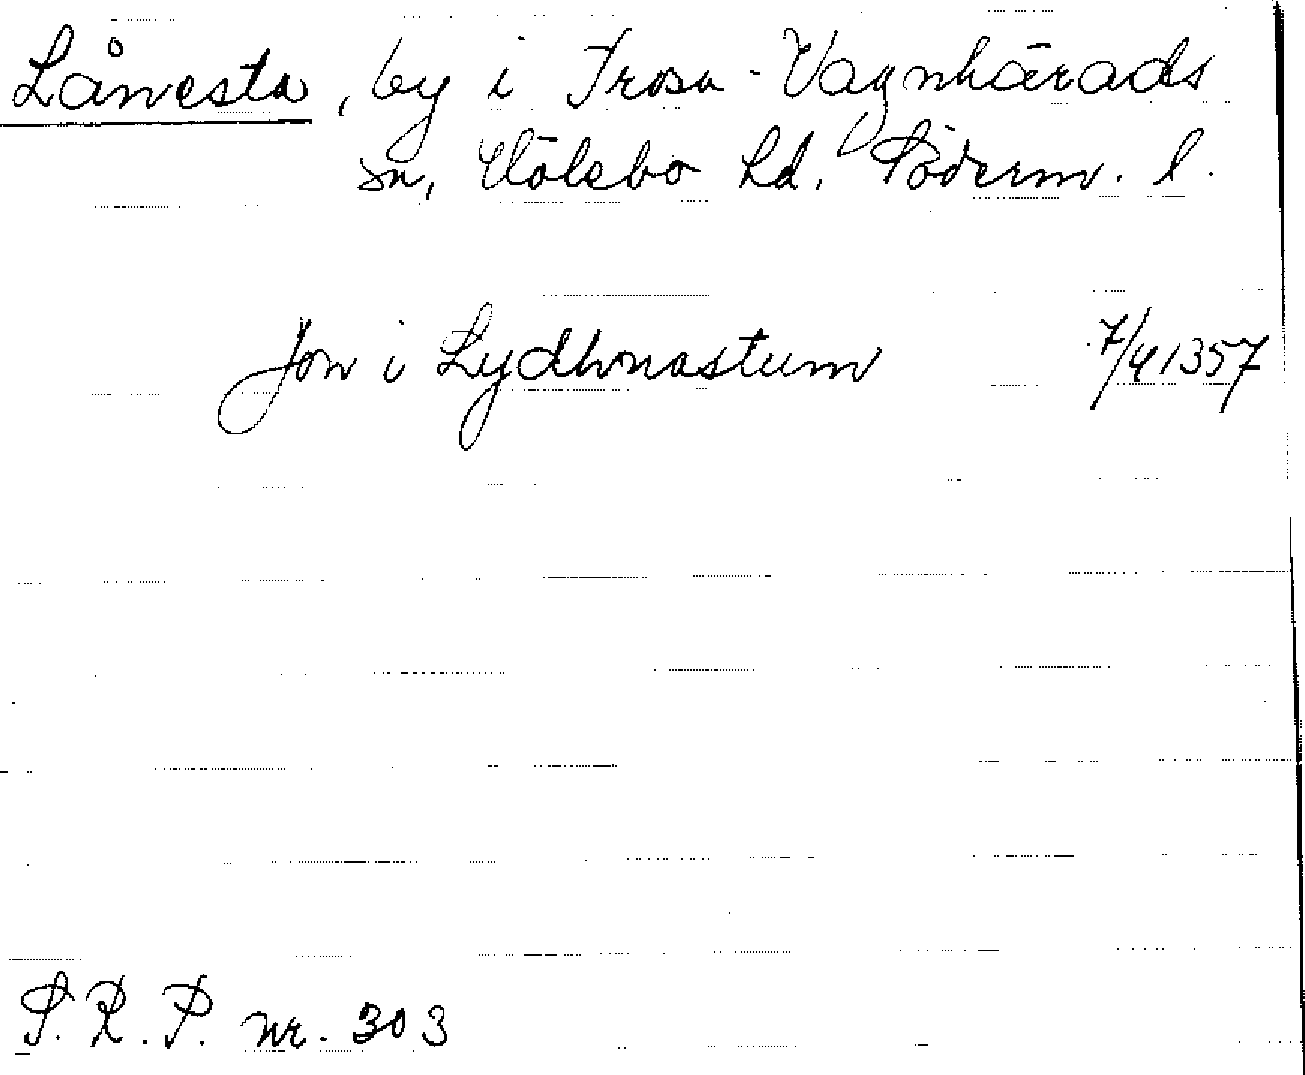 Lånesta, by i Trosa-Vagnhärads
sn, Hölebo hd, Söderm. l.
Jon i Lydhonastum 7/4 1357
S.R.P. nr. 303